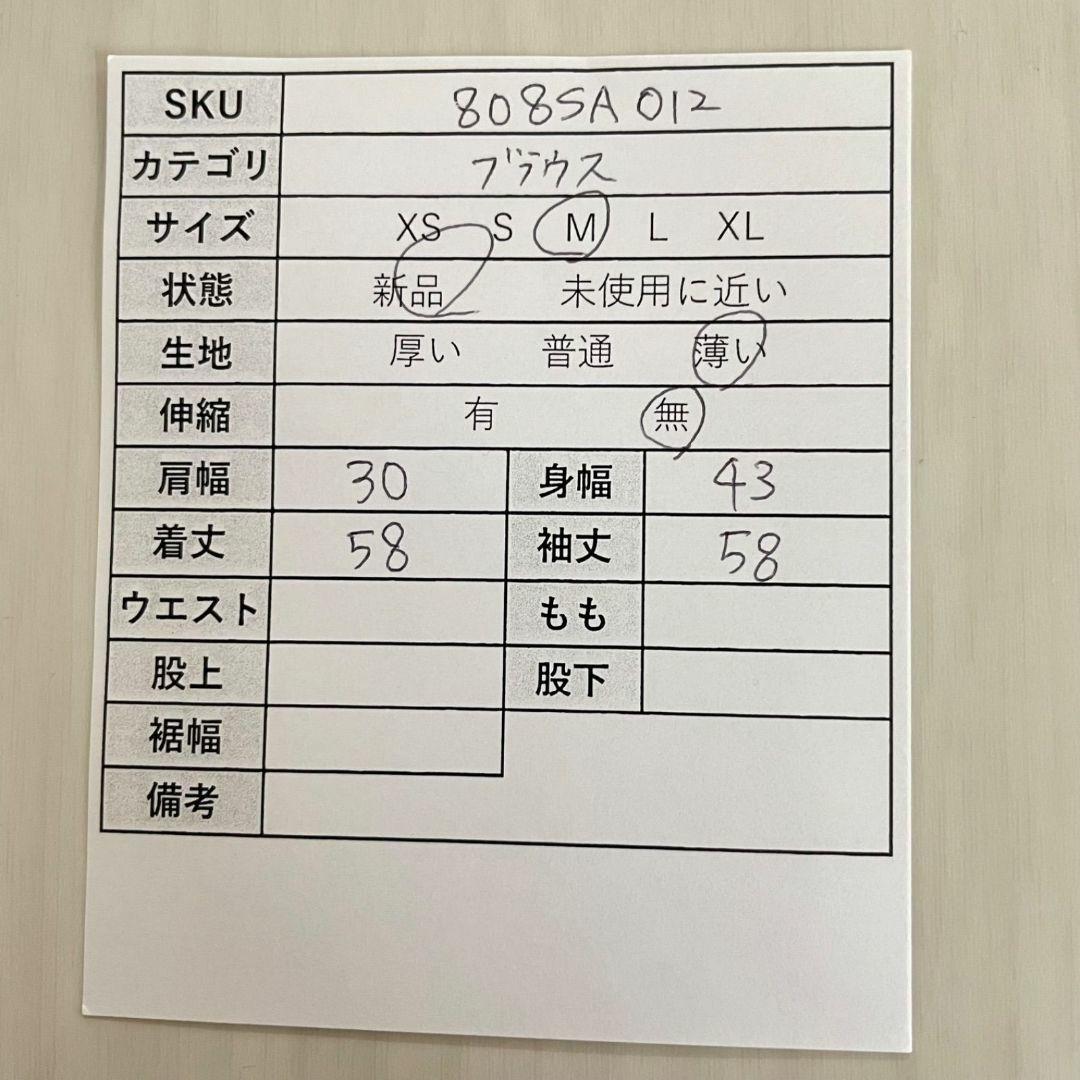 SKU 808SA012
カテゴリ ブラウス
サイズ XS S M L XL
状態 新品 未使用に近い
生地 厚い 普通 薄い
伸縮 有 無
肩幅 30 身幅 43
着丈 58 袖丈 58
ウエスト もも
股上 股下
裾幅
備考